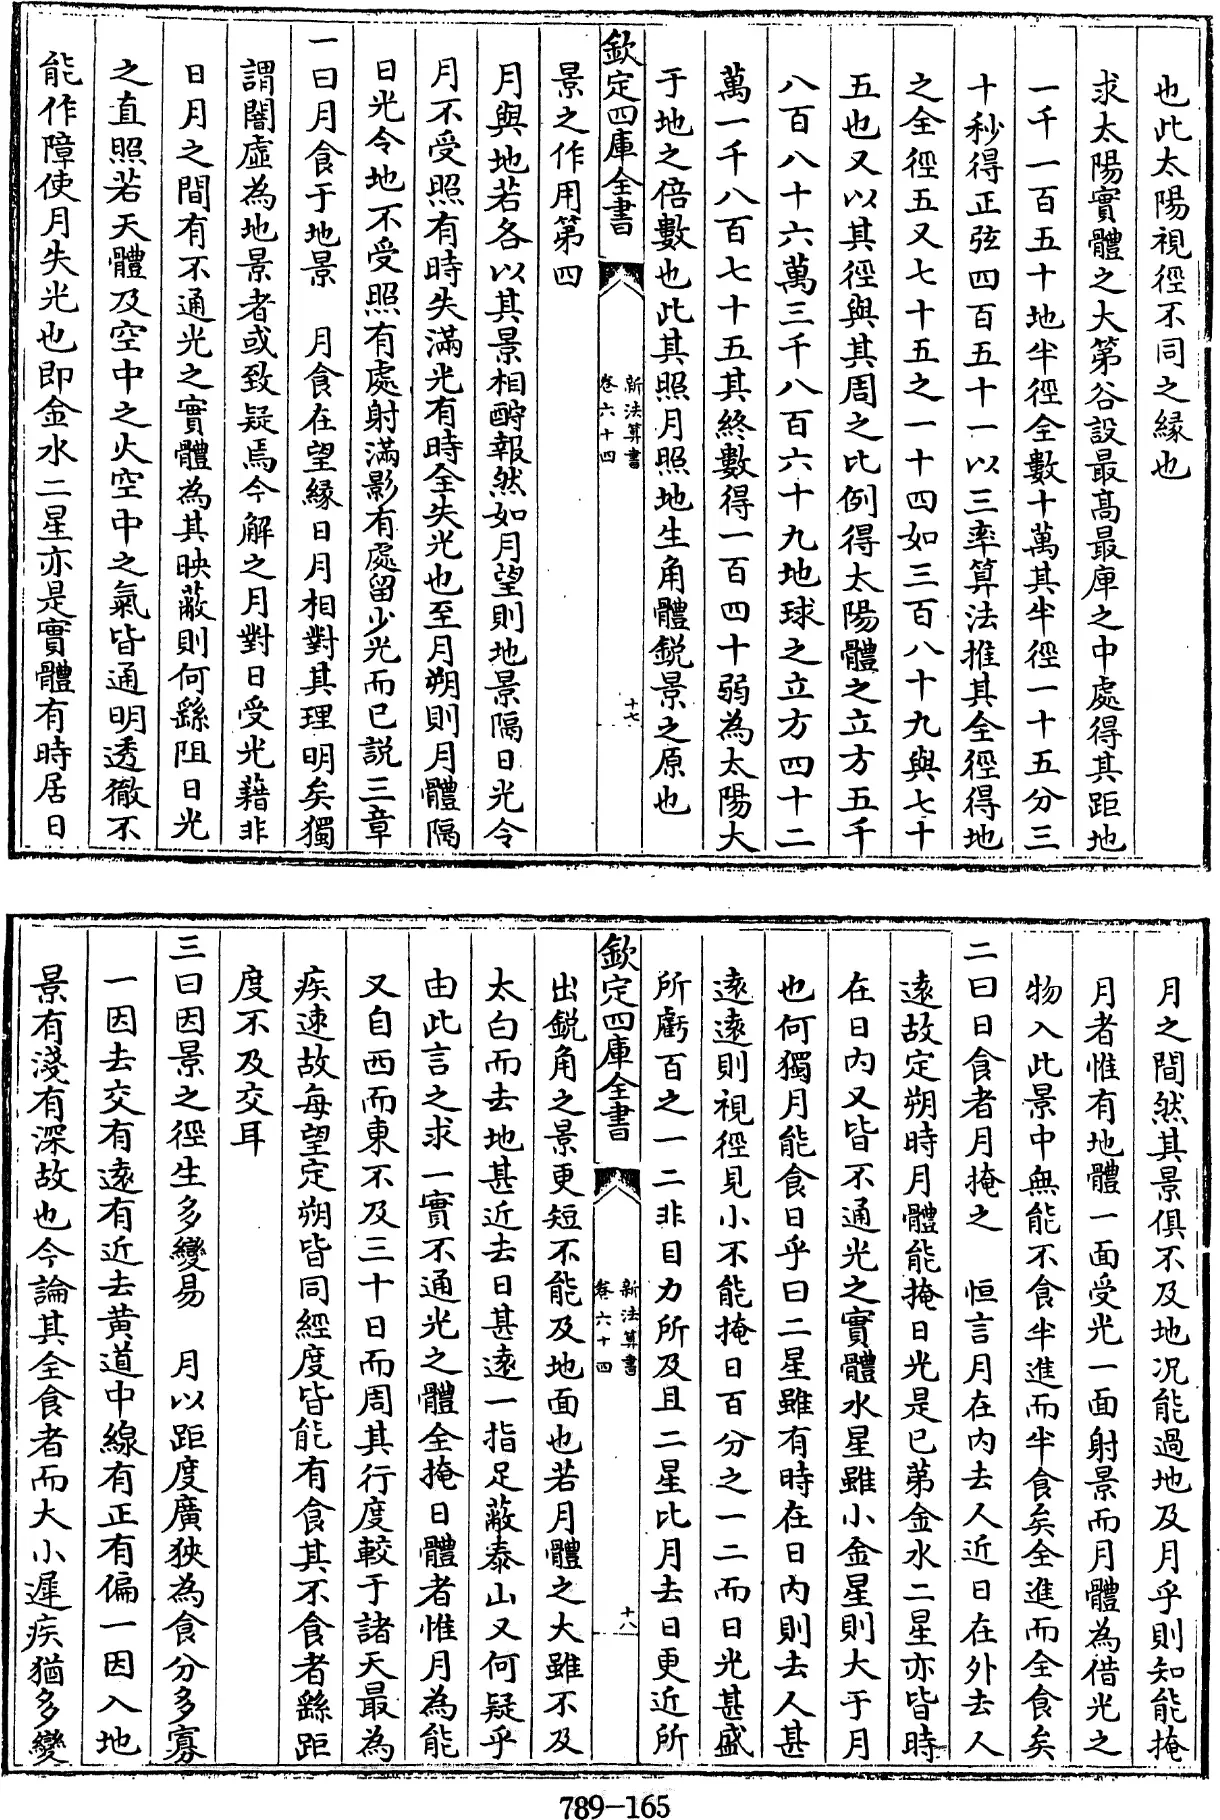 也此太陽視徑不同之縁也
求太陽實體之大第谷設最高最庳之中處得其距地
一千一百五十地半徑全數十萬其半徑一十五分三
十秒得正弦四百五十一以三率算法推其全徑得地
之全徑五又七十五之一十四如三百八十九與七十
五也又以其徑與其周之比例得太陽體之立方五千
八百八十六萬三千八百六十九地球之立方四十二
萬一千八百七十五其終數得一百四十弱為太陽大
于地之倍數也此其照月照地生角體銳景之原也
欽定四庫全書
新法算書
卷六十四
十七
景之作用第四
月與地若各以其景相酧報然如月望則地景隔日光令
月不受照有時失滿光有時全失光也至月朔則月體隔
日光令地不受照有處射滿影有處留少光而已説三章
一曰月食于地景 月食在望縁日月相對其理明矣獨
謂闇虛為地景者或致疑焉今解之月對日受光藉非
日月之間有不通光之實體為其映蔽則何繇阻日光
之直照若天體及空中之火空中之氣皆通明透徹不
能作障使月失光也即金水二星亦是實體有時居日
月之間然其景俱不及地况能過地及月乎則知能掩
月者惟有地體一面受光一面射景而月體為借光之
物入此景中無能不食半進而半食矣全進而全食矣
二曰日食者月掩之 恒言月在内去人近日在外去人
逺故定朔時月體能掩日光是已第金水二星亦皆時
在日内又皆不通光之實體水星雖小金星則大于月
也何獨月能食日乎曰二星雖有時在日内則去人甚
逺逺則視徑見小不能掩日百分之一二而日光甚盛
所虧百之一二非目力所及且二星比月去日更近所
欽定四庫全書
新法算書
卷六十四
十八
出銳角之景更短不能及地面也若月體之大雖不及
太白而去地甚近去日甚逺一指足蔽泰山又何疑乎
由此言之求一實不通光之體全掩日體者惟月為能
又自西而東不及三十日而周其行度較于諸天最為
疾速故每望定朔皆同經度皆能有食其不食者繇距
度不及交耳
三曰因景之徑生多變易 月以距度廣狹為食分多寡
一因去交有逺有近去黄道中線有正有偏一因入地
景有淺有深故也今論其全食者而大小遲疾猶多變
789-165